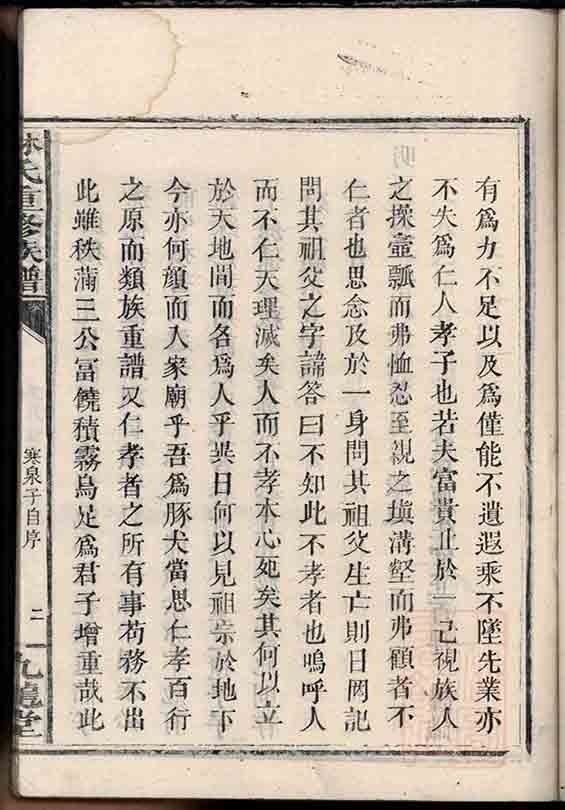 有爲力不足以及爲僅能不遺遐乘不墜先業亦
不失爲仁人孝子也若夫富貴止於一己視族人
之操壼瓢而弗恤忍至視之塡溝壑而弗顧者不
仁者也思念及於一身問其祖父生亡則曰罔記
問其祖父之字諱答曰不知此不孝者也嗚呼人
而不仁天理滅矣人而不孝本心死矣其何以立
於天地間而各爲人乎異日何以見祖宗於地下
今亦何顏而入家廟乎吾爲豚犬當思仁孝百行
之原而類族重譜又仁孝者之所有事苟務不出
此雖秩滿三公富饒積霧烏足爲君子增重哉此
林氏重修族譜
寒泉子自序
二
九龍堂